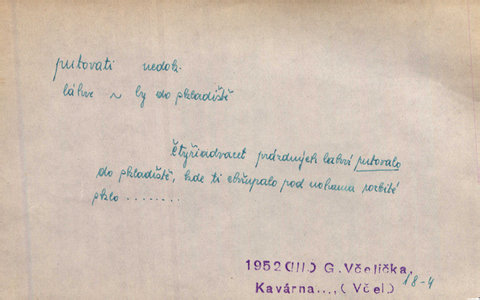 putovati nedok.
láhve ~ ly do skladiště
čtyřiadvacet prázdných lahví putovalo
do skladiště, kde ti chřupalo pod nohama rozbité
sklo ........
1952(III) G. Včelička,
Kavárna...,(Včel) 18-4